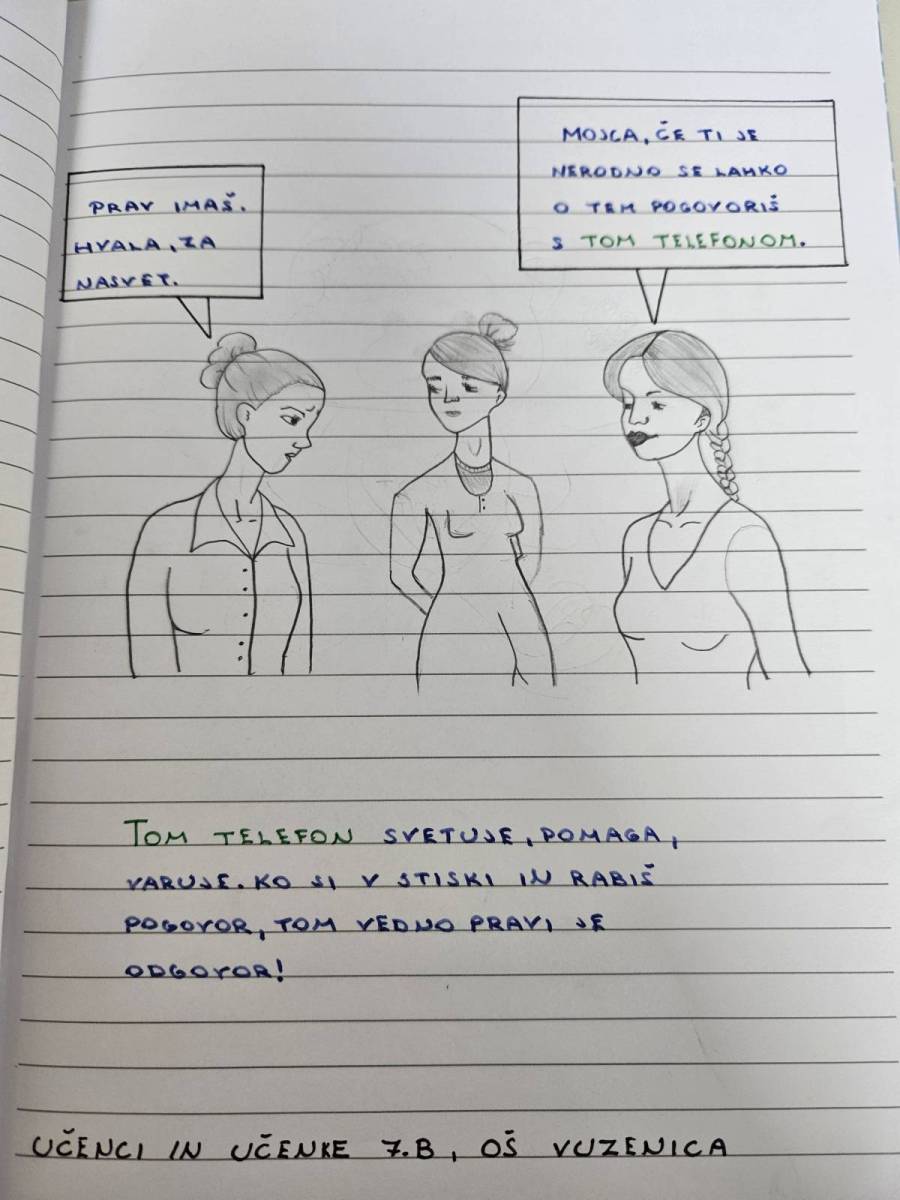 PRAV IMAŠ.
HVALA, ZA
NASVET.
MOJCA, ČE TI JE
NERODNO SE LAHKO
O TEM POGOVORIŠ
S TOM TELEFONOM.
TOM TELEFON SVETUJE, POMAGA,
VARUJE. KO SI V STISKI IN RABIŠ
POGOVOR, TOM VEDNO PRAVI JE
ODGOVOR!
UČENCI IN UČENKE 7.B, OŠ VUZENICA